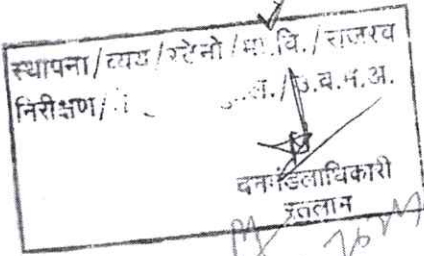 स्थापना/व्यय/स्टेनो/मा.चि./राजस्व
निरीक्षण/
उ.व.म.अ.
वनमंडलाधिकारी
रतलाम